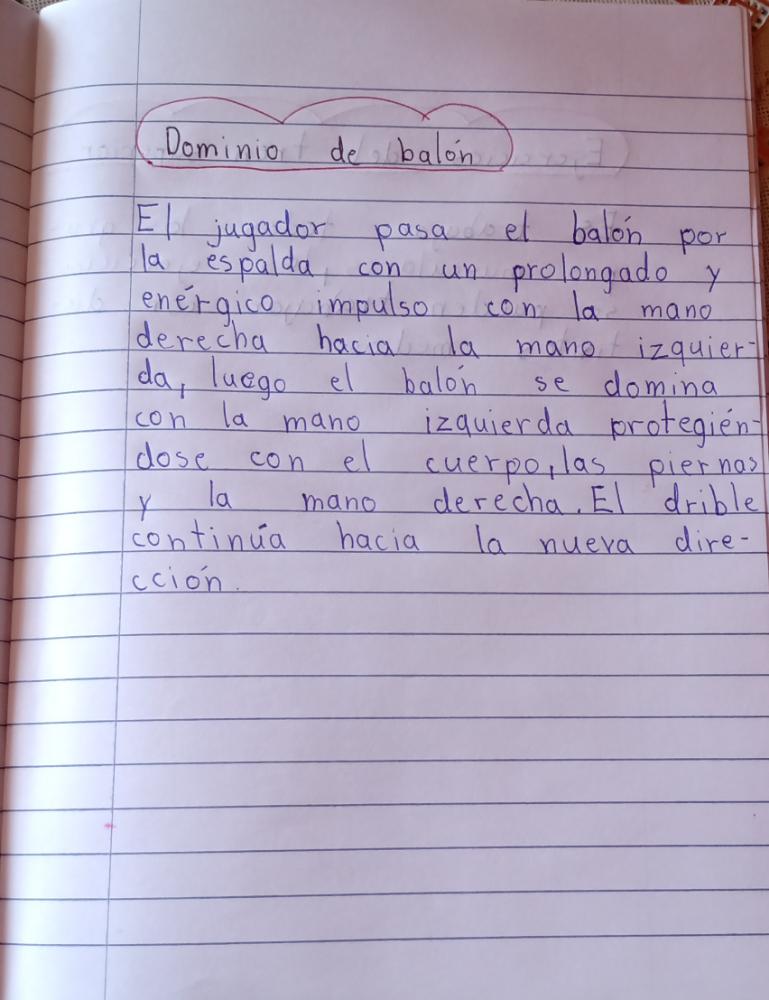 Dominio de balón
El jugador pasa el balón por
la espalda con un prolongado y
enérgico impulso con la mano
derecha hacia la mano izquier-
da, luego el balón se domina
con la mano izquierda protegién-
dose con el cuerpo, las piernas
y la mano derecha. El drible
continúa hacia la nueva dire-
cción.